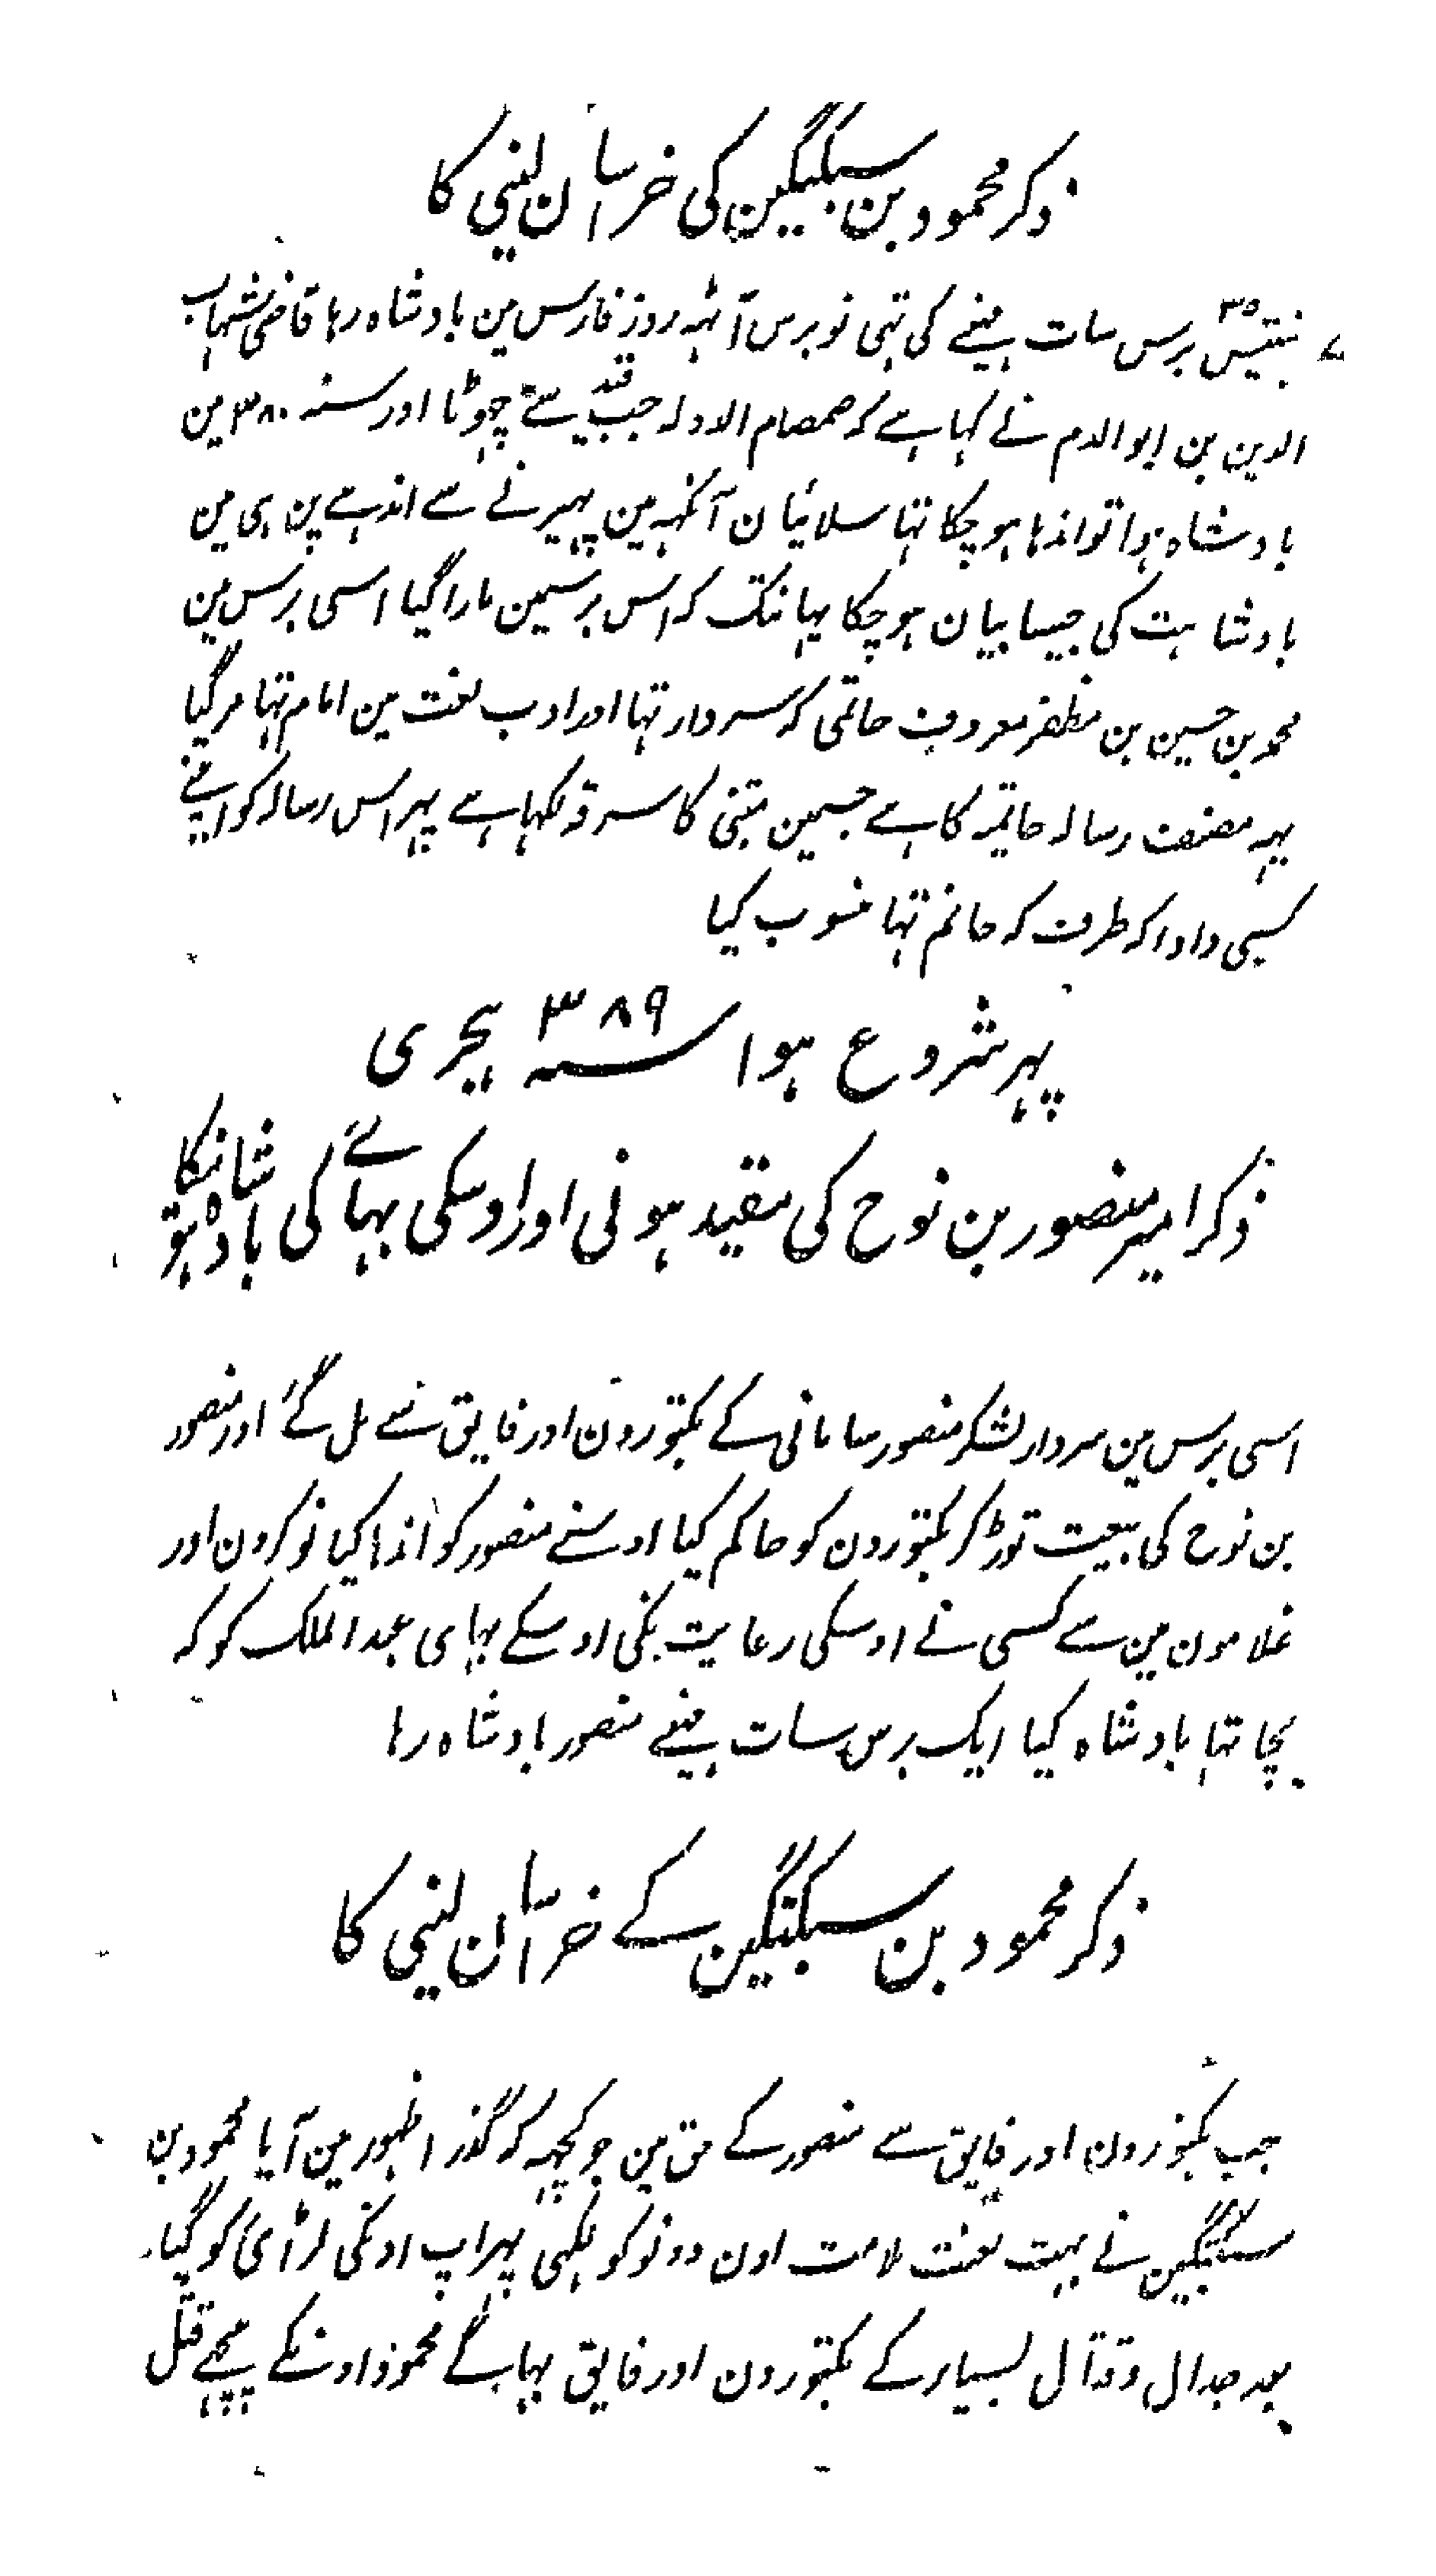 ذکر محمود بن سبکتگین کی خراسان لینی کا
پنتیس ۳۵ برس سات مہینے کی تہی نو برس آٹہہ روز فارس مین بادشاہ رہا قاضی شہاب
الدین بن ابو الدم نے کہا ہے کہ صمصام الدولہ جب قید سے چہوٹا اور سنہ ۳۸۰ مین
بادشاہ ہوا تو اندہا ہو چکا تہا سلائیان آنکہہ مین پہیرنے سے اندہے پن ہی مین
بادشاہت کی جیسا بیان ہو چکا یہانتک کہ اس برسمین مارا گیا اسی برس مین
محمد بن حسین بن مظفر معروف حاتمی کہ سردار تہا اور ادب لغت مین امام تہا مر گیا
یہہ مصنف رسالہ حاتمیہ کا ہے جسمین متنبی کا سرقہ لکہا ہے پہر اس رسالہ کو اپنے
کسی دادا کہ طرف کہ حاتم تہا منسوب کیا
پہر شروع ہوا سنہ ۳۸۹ ہجری
ذکر امیر منصور بن نوح کی مقید ہونی اور اوسکی بہائے کی بادشاہ ہونیکا
اسی برس مین سردار لشکر منصور سامانی کے بکتوزون اور فایق سے مل گئے اور منصور
بن نوح کی بیعت توڑ کر بکتوزون کو حاکم کیا اوسنے منصور کو اندا کیا نوکرون اور
غلامون مین سے کسی نے اوسکی رعایت نکی اوسکے بہای عبد الملک کو کہ
بچا تہا بادشاہ کیا ایک برس سات مہینے منصور بادشاہ رہا
ذکر محمود بن سبکتگین کے خراسان لینی کا
جب بکتوزون اور فایق سے منصور کے حق مین جو کچہہ کہ گذرا ظہور مین آیا محمود بن
سبکتگین نے بہت لعنت ملامت اون دونو کو لکہی پہر آپ اونکی لڑائی کو گیا
بعد جدال و قتال بسیار کے بکتوزون اور فایق بہاگے محمود اونکے پیچہے قتل